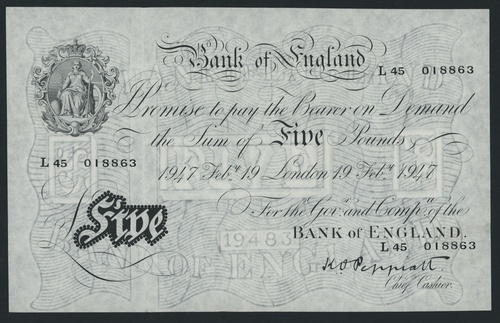 Bank of England
L 45 018863
I Promise to pay the Bearer on Demand
the Sum of Five Pounds
L 45 018863
1947 Feby 19 London 19 Feby 1947
For the Govr and Compa of the
Five
BANK of ENGLAND.
L 45 018863
K O Peppiatt
Chief Cashier.